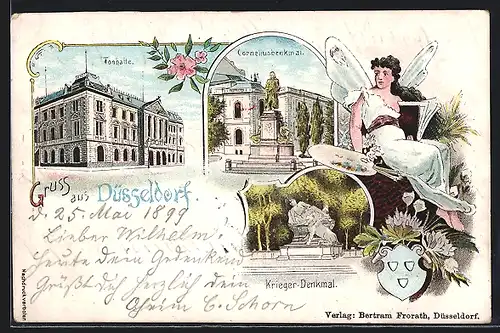 Tonhalle.
Corneliusdenkmal.
Gruss aus Düsseldorf.
d. 25. Mai 1899
Lieber Wilhelm!
Heute Dein Gedenkend
Grüßt Dich herzlich Dein
Oheim C. Schorn
Krieger-Denkmal.
Nachdruck verboten
Verlag: Bertram Frorath, Düsseldorf.